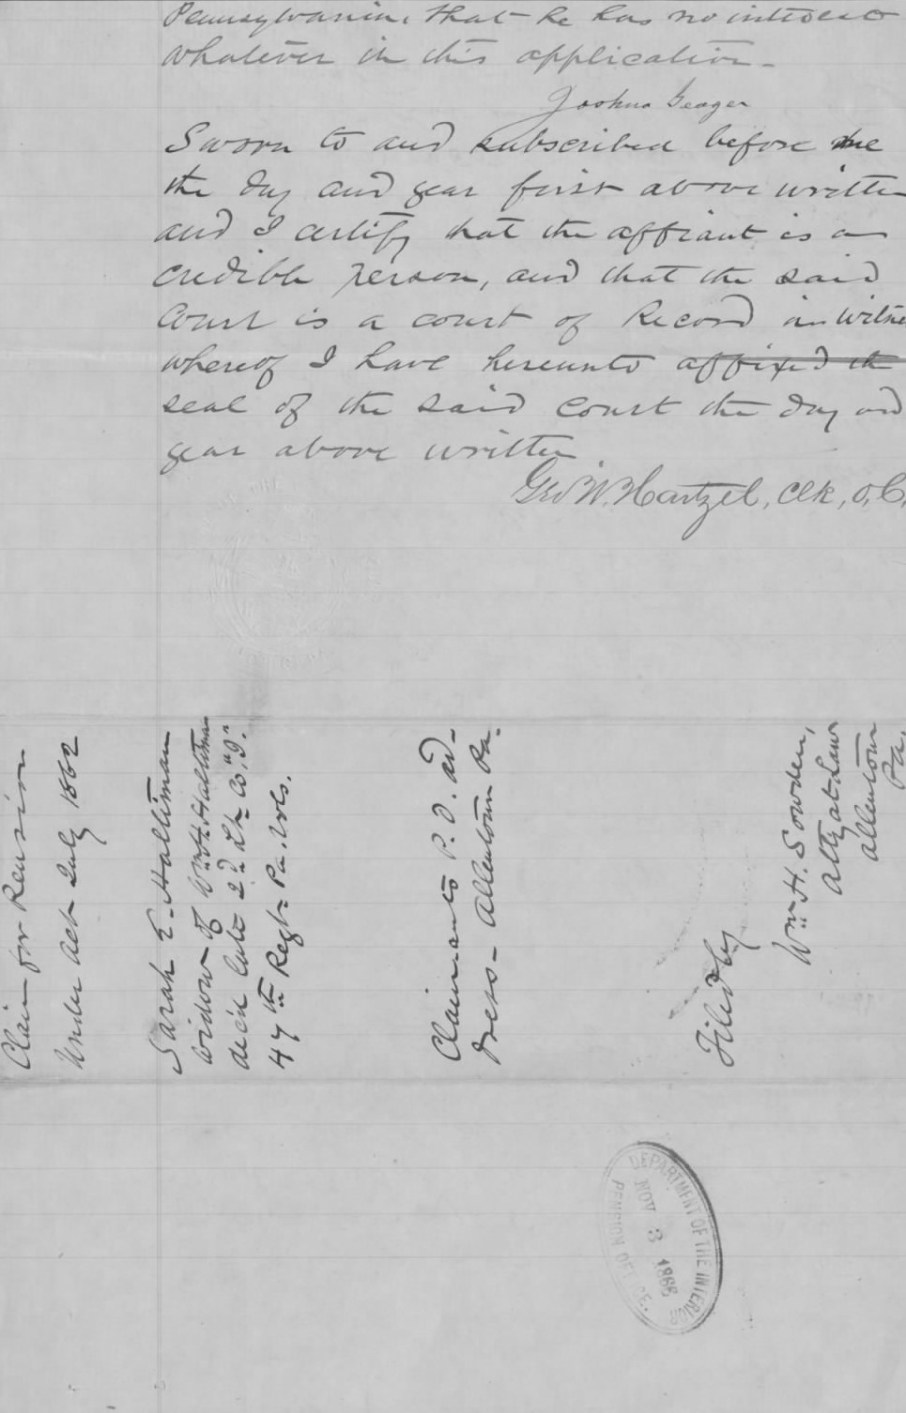 Pennsylvania, that he has no interest
whatever in this application -
Joshua Seager
Sworn to and subscribed before me
the day and year first above written
and I certify that the affiant is a
credible person, and that the said
Court is a court of Record in Witne
whereof I have hereunto affixed the
seal of the said Court the day and
year above written
Geo W. Hartzel, Clk, O, C,
Claim for Pension
Under Act July 1862
Sarah E. Haltiman
widow of Wm H. Haltiman
dec'd late 2d Lt. Co. "I".
47th Regt Pa. Vols.
Claimants P. O. ad-
dress - Allentown Pa.
Filed by
Wm H. Sowden,
Atty at Law
Allentown
Pa.
DEPARTMENT OF THE INTERIOR
NOV 3
PENSION OFFICE.